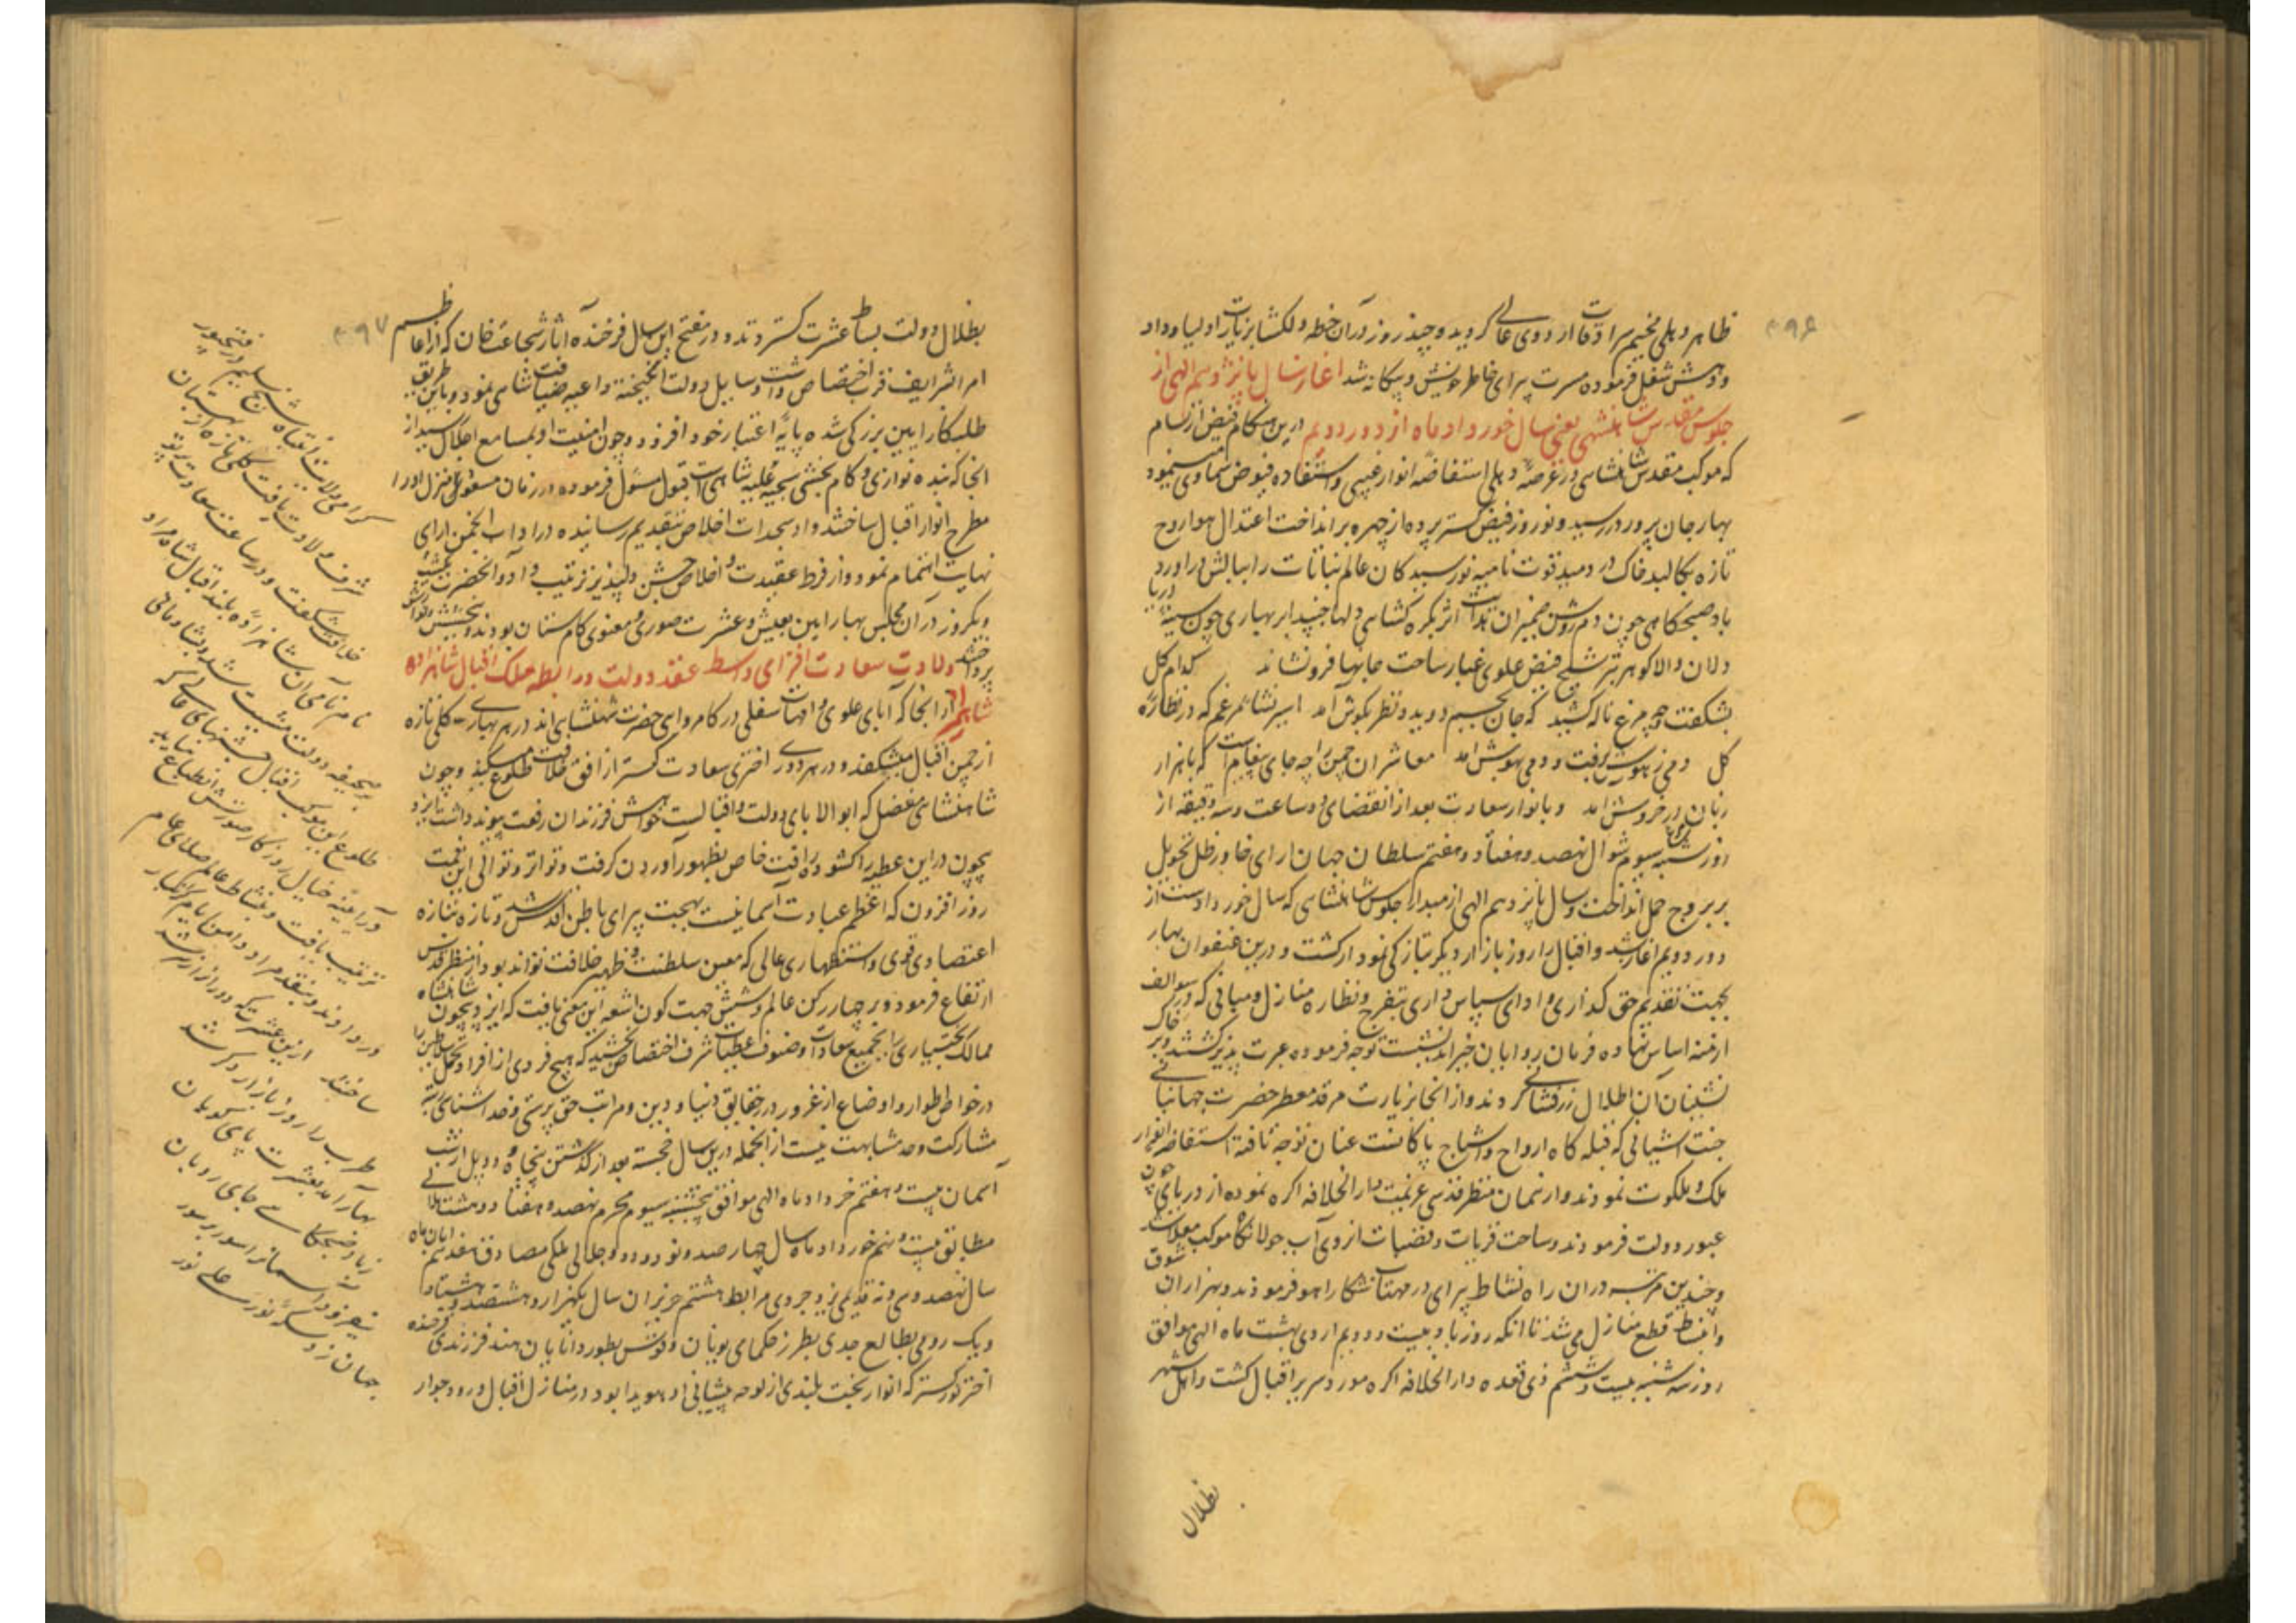 ۴۹۶
ظاهر دهلی مخیم سرادقات اردوی عالی گردید و چند روز در آن خطه دلکشا بزیارت اولیا و داد
و دهش شغل فرموده مسرت پیرای خاطر خویش و بیکانه شد اغاز سال پانزدهم الهی از
جلوس مقدس شاهنشهی یعنی سال خورداد ماه از دور دویم درین هنکام فیض ارتسام
که موکب مقدس شاهنشاهی در عرصه دهلی استفاضه انوار غیبی و استفاده فیوض سماوی مینمود
بهار جان پرور در رسید و نوروز فیض کستر پرده از چهره برانداخت اعتدال هوا روح
تازه بکالبد خاک در دمید قوت نامیه نورسیدکان عالم نباتات را ببالش دراورد
باد صبحکاهی چون دم روشن ضمیران هدایت اثر بکره کشایی دلها جنبید ابر بهاری چون سینه دریا
دلان والا کوهر بترشیح فیض علوی غبار ساحت جانها فرو نشاند کدام کل
بشکفت و چه مرغ ناله کشید که جان بجسم دوید و نظر بکوش آمد اسیر نشاه غم که در نظاره
کل دمی ز هوش برفت و دمی بهوش امد معاشران چمن را چه جای پیغام است که با هزار
زبان در خروش امد و با نوار سعادت بعد از انقضای دو ساعت و سه دقیقه از
روز شنبه سیوم شوال نهصد و هفتاد و هفتم سلطان جهان ارای خاور ظل تحویل
ببروج حمل انداخت و سال پانزدهم الهی از مبدا جلوس شاهنشاهی که سال خورداد است از
دور دویم اغاز شد و اقبال را روز بازار دیکر بتازکی نمودار کشت و درین عنفوان بهار
بجهت تقدیم حق کذاری و ادای سپاس داری بتفرج و نظاره منازل و مبانی که در سوالف
ازمنه اساس نهاده فرمان روایان خیراندیش است توجه فرموده عبرت پذیر کشتند و بر خاک
نشینان آن اطلال زرفشانی کردند و از انجا بزیارت مرقد معطر حضرت جهانبانی
جنت اشیانی که قبله کاه ارواح و اشباح پاکانست عنان توجه تافته استفاضه انوار
ملک و ملکوت نمودند و از همان منظر قدسی عزیمت دار الخلافه اکره نموده از دریای جون
عبور دولت فرمودند و ساحت قریات و قصبات انروی آب جولانکاه موکب معلی شد
و چندین مرتبه دران راه نشاط پیرای در مهتاب شکار اهو فرمودند و بهزاران شوق
و انبساط قطع منازل می شد تا انکه روز باد بیست و دویم اردی بهشت ماه الهی موافق
روز سه شنبه بیست و ششم ذی قعده دار الخلافه اکره مورد سریر اقبال کشت و اهل شهر
بظلال
۴۹۷
بظلال دولت بساط عشرت کستردند و در مفتتح این سال فرخنده آثار شجاعت خان که از اعاظم
امرا شرایف قرب اختصاص داشت وسایل دولت انکیخته داعیه ضیافت شاهی نمود و باین طریق
طلبکار ایین بزرکی شده پایه اعتبار خود افزود و چون امنیت او بمسامع اجلال رسید از
انجا که بنده نوازی و کام بخشی سجیه علیه شاهی است قبول مسئول فرموده در زمان مسعود منزل او را
مطرح انوار اقبال ساختند و او سجدات اخلاص بتقدیم رسانیده در اداب انجمن ارای
نهایت اهتمام نمود و از فرط عقیدت و اخلاص جشن دلپذیر ترتیب داد و انحضرت یکشب
و یکروز در آن مجلس بهار ایین بعیش و عشرت صوری و معنوی کام ستان بودند و ببخشش و نوازش
پرداختند ولادت سعادت افزای واسط عقد دولت و رابطه ملک اقبال شاهزاده
شاه مراد از انجا که آبای علوی و امهات سفلی در کامروای حضرت شهنشاهی اند در هر بهاری کلی تازه
از چمن اقبال میشکفد و در هر دوری اختری سعادت کستر از افق خلافت طلوع میکند و چون
شاهنشاهی مفضل که ابو الابای دولت و اقبالست خواهش فرزندان رفعت پیوند داشت ایزد
بیچون در این عطیه را کشوده رافت خاص بظهور آوردن کرفت و تواتر و توالی این نعمت
روز افزون که اعظم عبادت آسمانیست بهجت پیرای باطن اقدس شد و تازه بتازه
اعتضادی قوی و استظهاری عالی که معین سلطنت و ظهیر خلافت تواند بود از منظر قدس
ارتفاع فرمود و بر چهار رکن عالم و شش جهت کون اشعه این معنی یافت که ایزد بیچون شاهنشاه
ممالک بختیاری را بجمیع سعادات و صنوف عطیات شرف اختصاص بخشید که هیچ فردی از افراد کمل سلاطین را
در خواطر اطوار و اوضاع از غرور در حقایق دنیا و دین و مراتب حق پرستی و خدا شناسی رتبه
مشارکت و حد مشابهت نیست از انجمله درین سال خجسته بعد از کذشتن پنجاه و دو پل از شب
آسمان بیست و هفتم خرداد ماه الهی موافق پنجشنبه سیوم محرم نهصد و هفتاد و هشت هلالی
مطابق بیست و نهم خورداد ماه سال چهارصد و نود و دو جلالی ملکی مصادف هفدهم ابان ماه
سال نهصد و سی و نه قدیمی یزدجردی مرابط هشتم حزیران سال یکهزار و هشتصد و هشتاد
و یک رومی بطالع جدی بطرز حکمای یونان و قوس بطور دانایان هند فرزندی فرخنده
اختر نور کستر که انوار بخت بلندی از لوحه پیشانی او هویدا بود در منازل اقبال ورود جوار
کرامی ولایت انتباه شیخ سلیم در فتحپور
شرف ولادت یافت کلی تازه از بستان
خلافت شکفت و در ساعت سعادت پرتو
نام نامی آن شاهزاده بلند اقبال شاه مراد
بر صحیفه دولت مثبت شد و بشادمانی
طلوع این کوکب اقبال جشنهای عالی که
در آیینه خیال روزکار صورتش انطباع نیابد
ترتیب یافت و نشاط عالم صلای عام
در دادند و بنقد مراد دامن ایام کرانبار
ساختند ازین عشرت که دور از ارزشد
طرب را روز بازار دکر شد
بهار آمد بعشرت پای کوبان
ز باد صبحکاهی جای روبان
بنفزود آسمان را سور بر سور
جهان زد سکه نور علی نور